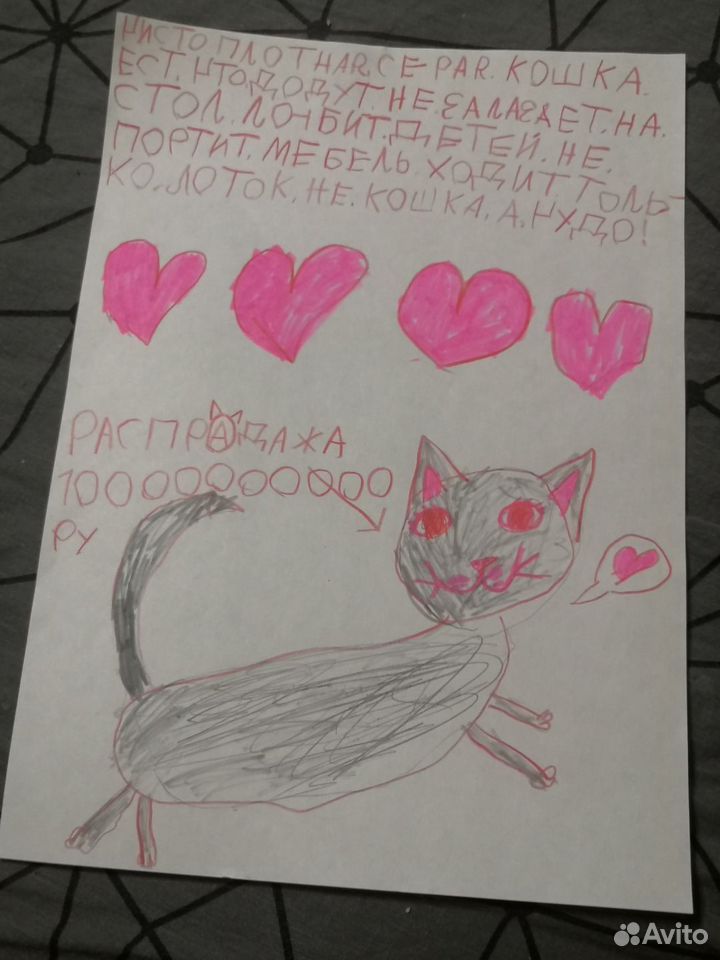 ЧИСТО.ПЛОТНАЯ.СЕРАЯ.КОШКА.
ЕСТ.ЧТО.ДОДУТ.НЕ.ЗАЛАЗАЕТ.НА.
СТОЛ.ЛЮБИТ.ДЕТЕЙ.НЕ.
ПОРТИТ.МЕБЕЛЬ.ХОДИТ ТОЛЬ-
КО.ЛОТОК.НЕ.КОШКА.А.ЧУДО!
РАСПРАДАЖА
10000000000
РУ
Avito